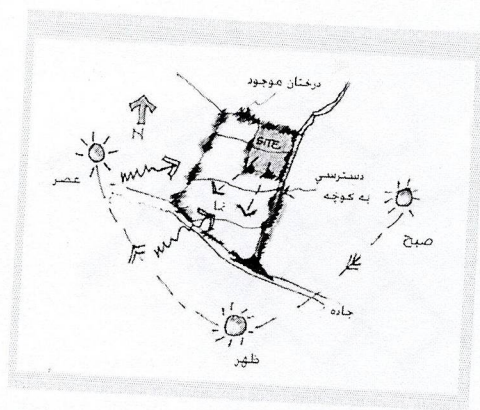 درختان موجود
N
SITE
عصر
دسترسی
به کوچه
نما
صبح
جاده
ظهر